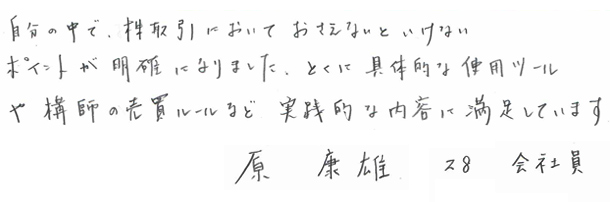 自分の中で、株取引においておさえないといけない
ポイントが明確になりました、とくに具体的な使用ツール
や構師の売買ルールなど実践的な内容に満足しています
原 康雄 28 会社員